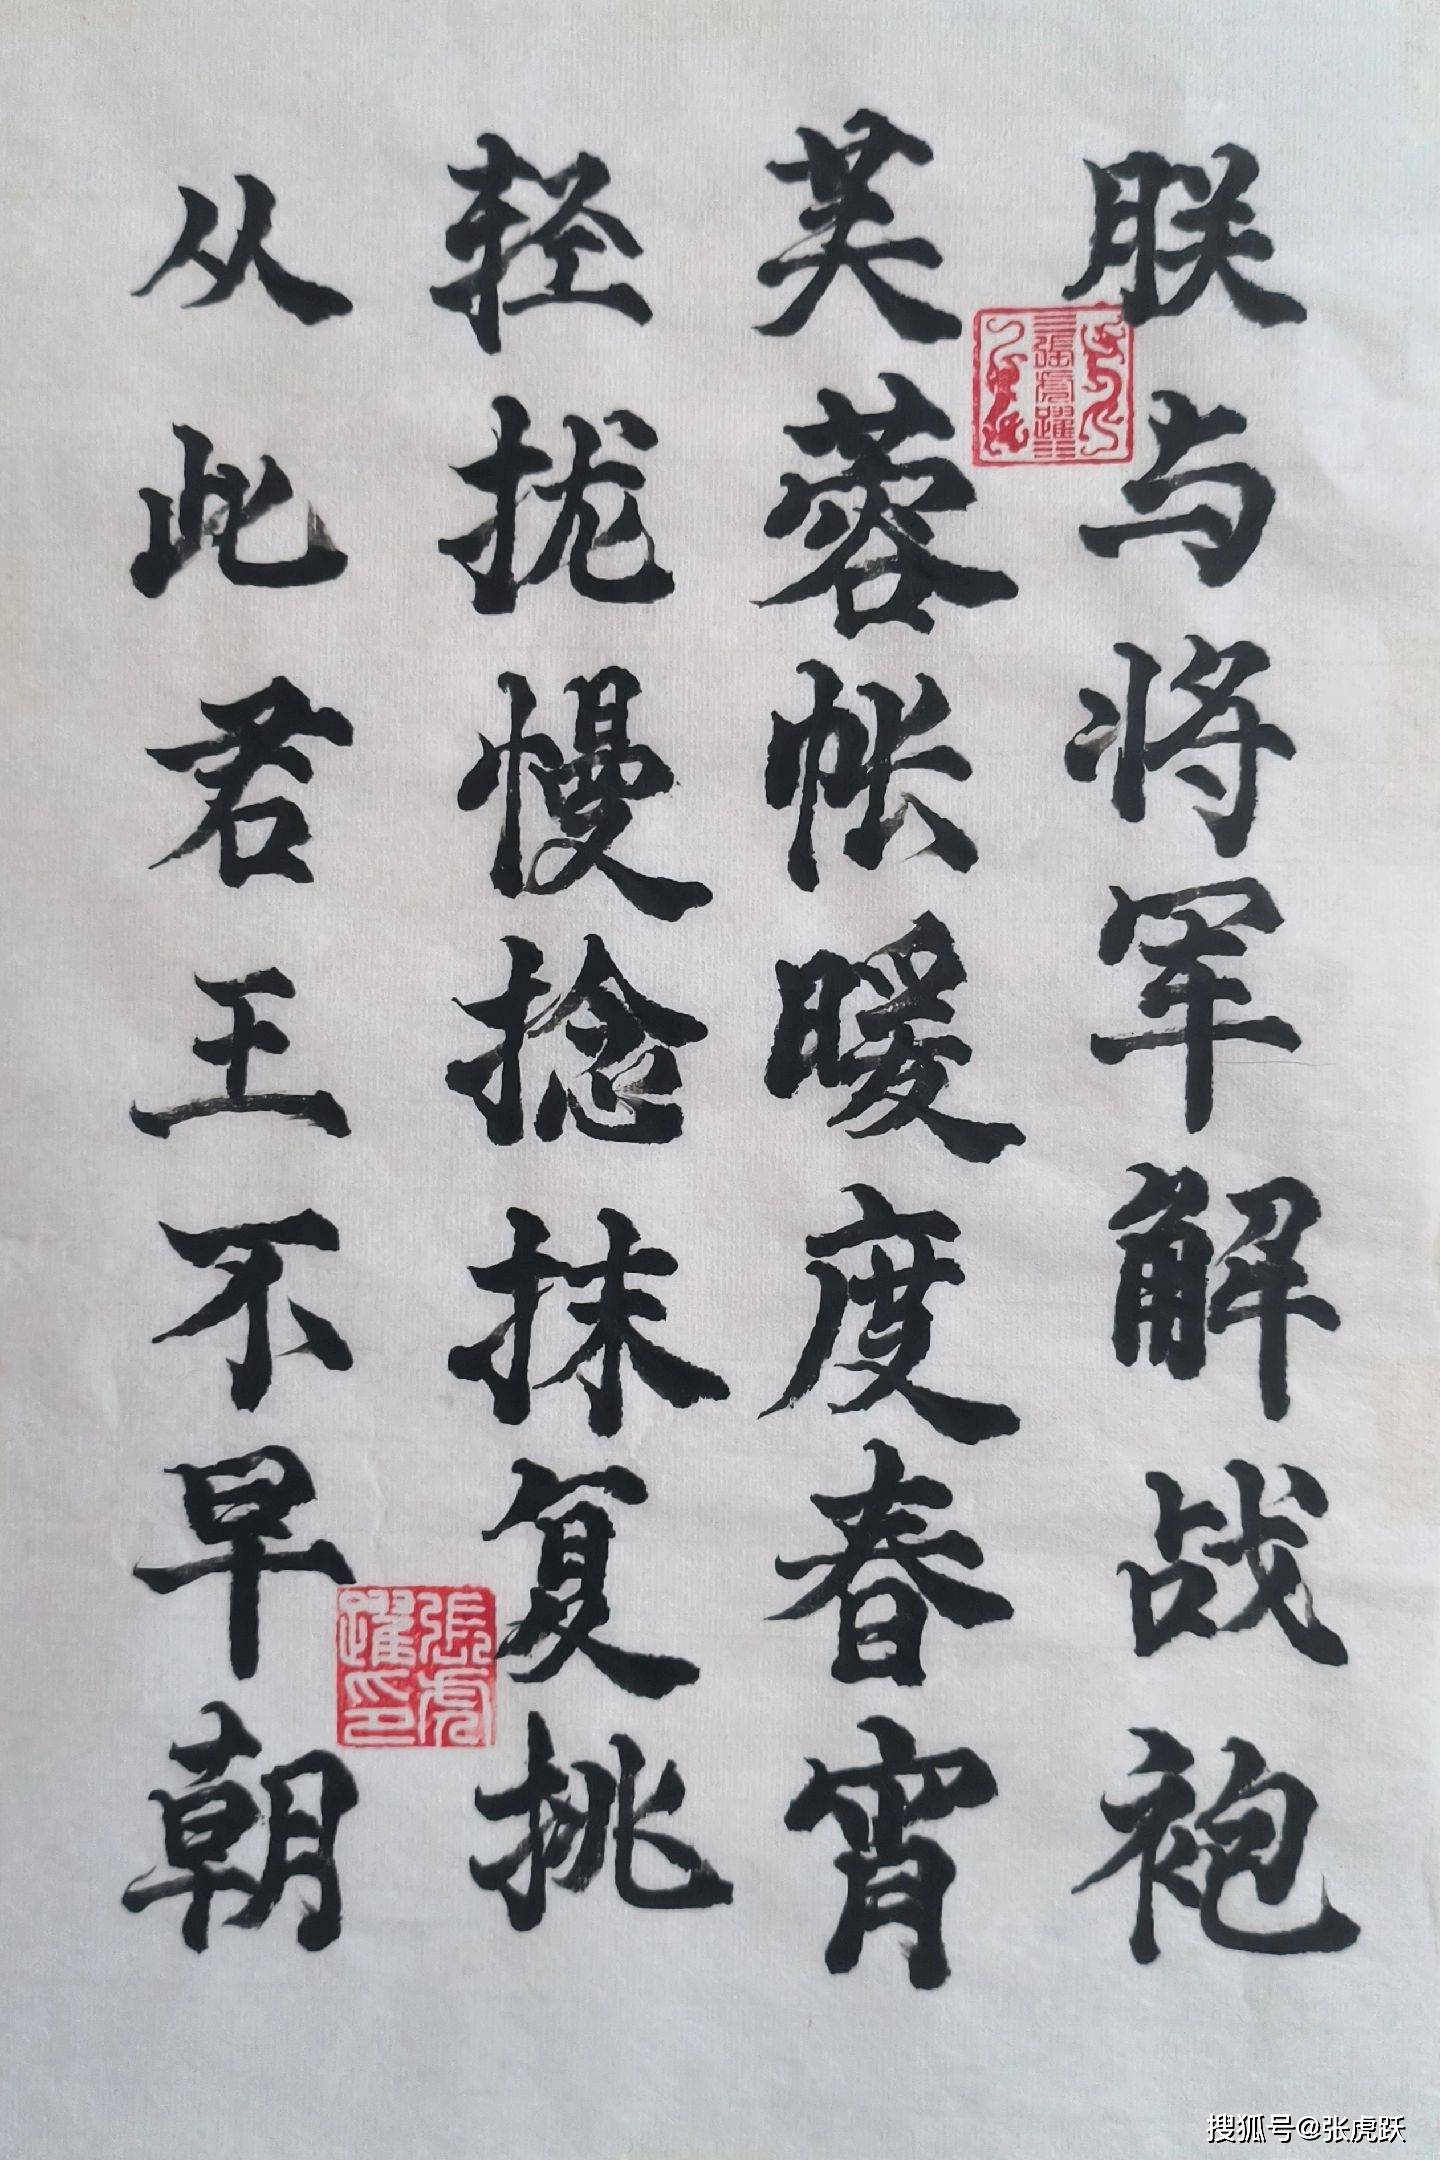 朕与将军解战袍
芙蓉帐暖度春宵
轻拢慢捻抹复挑
从此君王不早朝
張虎躍
張虎躍印
搜狐号@张虎跃